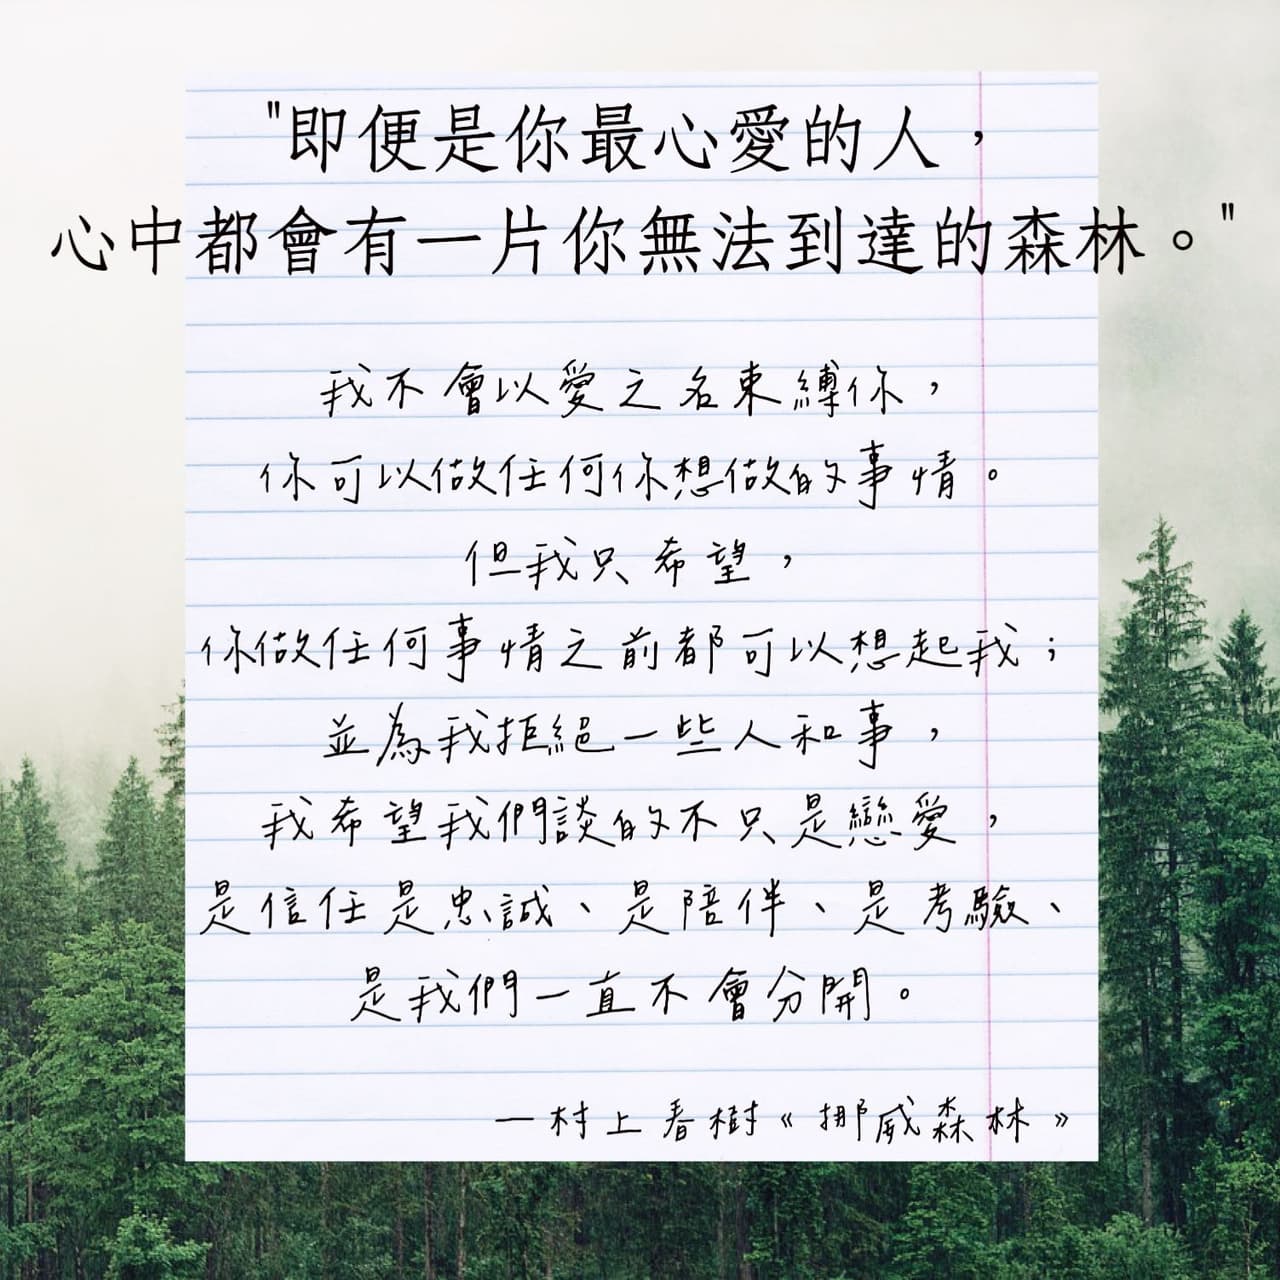 "即便是你最心愛的人，
心中都會有一片你無法到達的森林。"
我不會以愛之名束縛你，
你可以做任何你想做的事情。
但我只希望，
你做任何事情之前都可以想起我；
並為我拒絕一些人和事，
我希望我們談的不只是戀愛，
是信任是忠誠、是陪伴、是考驗、
是我們一直不會分開。
—村上春樹《挪威森林》